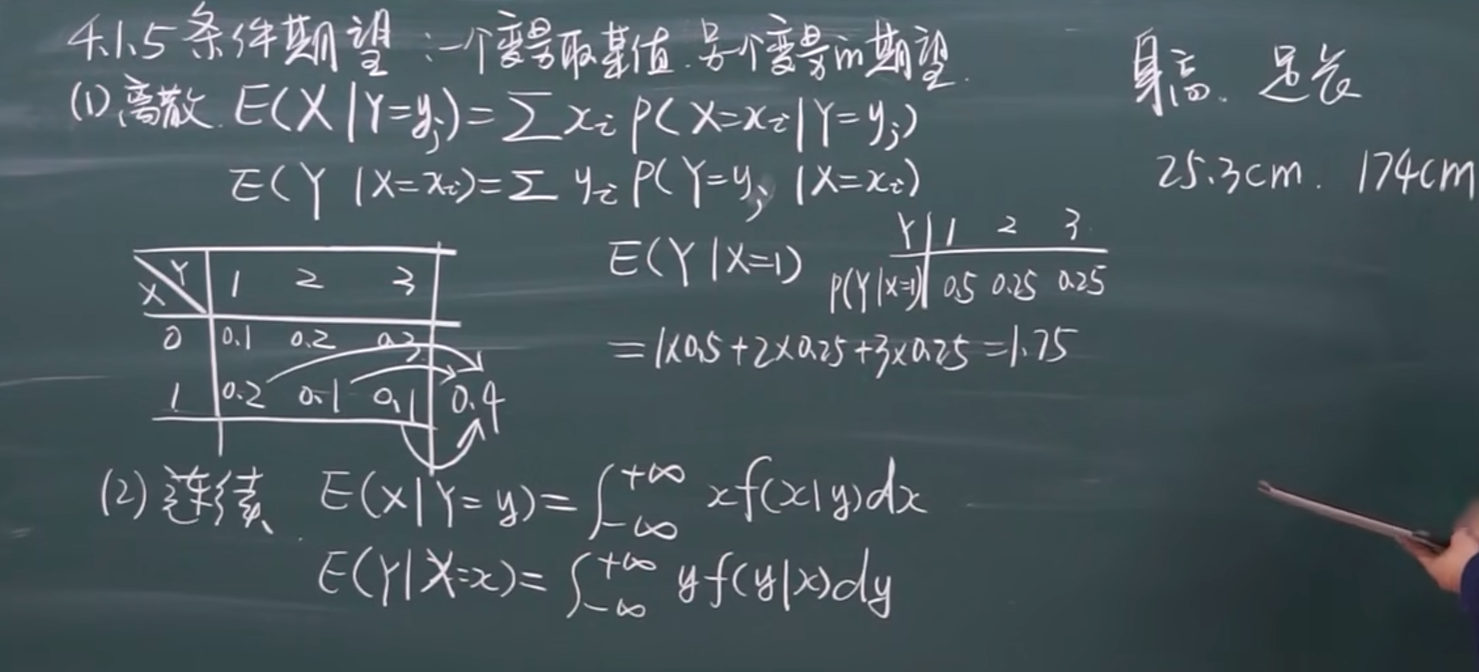 4.1.5 条件期望:一个变量取某值.另个变量的期望.
(1)离散. E(X|Y=yj)=∑xi P(X=xi|Y=yj)
E(Y|X=xi)=∑ yi P(Y=yj |X=xi)
身高. 足长
25.3cm. 174cm
X Y 1 2 3
0 0.1 0.2 0.3
1 0.2 0.1 0.1 0.4
E(Y|X=1)
Y 1 2 3
P(Y|X=1) 0.5 0.25 0.25
=1×0.5+2×0.25+3×0.25=1.75
(2)连续. E(X|Y=y)=∫_{-∞}^{+∞} xf(x|y)dx
E(Y|X=x)=∫_{-∞}^{+∞} yf(y|x)dy